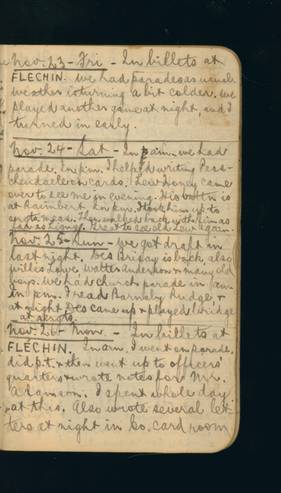 Nov. 23 - Fri - In billets at
FLECHIN. We had parades as usual
weather turning a bit colder. We
played another game at night, and I
turned in early.
Nov. 24 - Sat - In p.m. we had
parade. In p.m. I helped writing Pass-
chendaele on cards. Lew Honey came
over to see me in evening. His batt'n is
at hambert. Took him up to
sgts mess. Then walked back with him as
far as Ligny. Great to see old Lew again.
Nov. 25 - Sun - We got draft in
last night. Des Briday is back, also
Willis Lowe, Watter Anderson & many old
boys. We had church parade in a.m.
In p.m. I read Barnaby Rudge &
at night Des came up & played bridge
at sergts.
Nov. 26 - Mon. - In billets at
FLÉCHIN. In a.m. I went on parade,
did p.t. & then went up to officers'
quarters & wrote notes for Mr.
Adamson. I spent whole day
at this. Also wrote several let-
ters at night in Co. card room